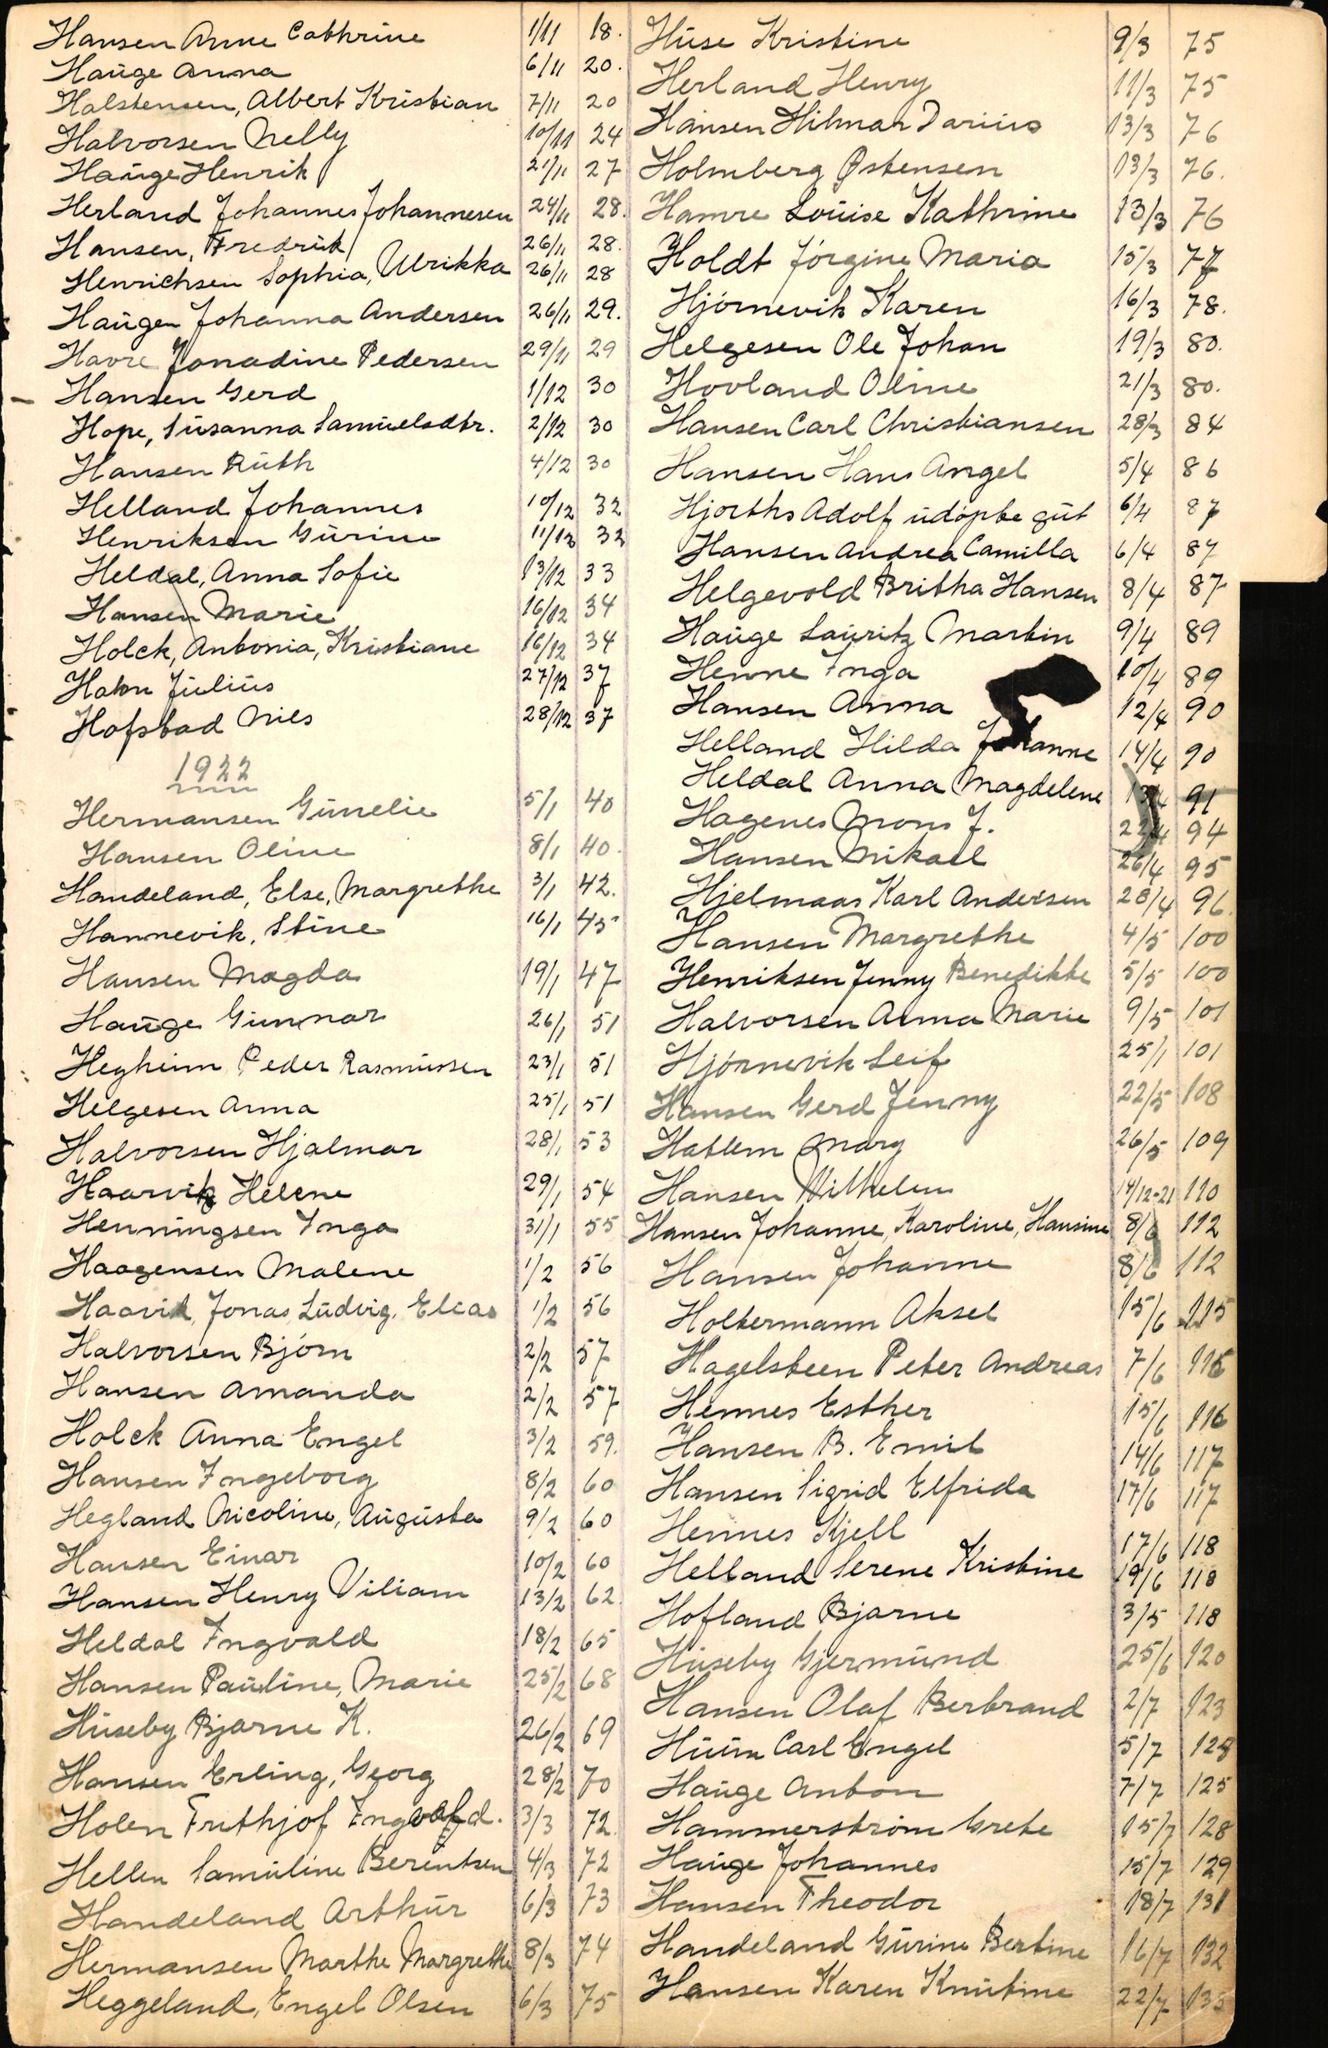 Hansen Anne Cathrine 1/11 18.
Hauge Anna 6/11 20.
Halstensen, Albert Kristian 7/11 20
Halvorsen Nelly 10/11 24
Hauge Henrik 21/11 27
Herland Johannes Johannesen 24/11 28.
Hansen, Fredrik 26/11 28.
Henrichsen Sophia, Ulrikka 26/11 28
Haugen Johanna Andersen 26/11 29.
Havre Jonadine Pedersen 29/11 29
Hansen Gerd 1/12 30
Hope, Susanna Samuelsdtr. 2/12 30
Hansen Ruth 4/12 30
Helland Johannes 10/12 32
Henriksen Gurine 11/12 32
Heldal, Anna Sofie 13/12 33
Hansen Marie 16/12 34
Holck, Antonia, Kristiane 16/12 34
Hahn Julius 27/12 37
Hofstad Nils 28/12 37
1922
Hermansen Gunelie 5/1 40
Hansen Oline 8/1 40.
Handeland, Else, Margrethe 3/1 42.
Hannevik, Stine 16/1 45
Hansen Magda 19/1 47
Hauge Gunnar 26/1 51
Hegheim Peder Rasmussen 23/1 51
Helgesen Anna 25/1 51
Halvorsen Hjalmar 28/1 53
Haarvik Helene 29/1 54
Henningsen Inga 31/1 55
Haagensen Malene 1/2 56
Haavik, Jonas, Ludvig, Elias 1/2 56
Halvorsen Bjørn 2/2 57
Hansen Amanda 2/2 57
Holck Anna Engel 3/2 59.
Hansen Ingeborg 8/2 60
Hegland Nicoline, Augusta 9/2 60
Hansen Einar 10/2 60
Hansen Henry Viliam 13/2 62
Heldal Ingvald 18/2 65
Hansen Pauline, Marie 25/2 68
Huseby Bjarne K. 26/2 69
Hansen Erling, Georg 28/2 70
Holen Frithjof Ingvald. 3/3 72
Hellen Samuline Berentsen 4/3 72
Handeland Arthur 6/3 73
Hermansen Marthe Margrethe 8/3 74
Heggeland, Engel Olsen 6/3 75
Huse Kristine 9/3 75
Herland Henry 11/3 75
Hansen Hilmar Darius 13/3 76
Holmberg Østensen 13/3 76.
Hamre Louise Kathrine 13/3 76
Holdt Jørgine Maria 15/3 77
Hjørnevik Karen 16/3 78.
Helgesen Ole Johan 19/3 80.
Hovland Oline 21/3 80.
Hansen Carl Christiansen 28/3 84
Hansen Hans Angel 5/4 86
Hjorths Adolf udøpte gut 6/4 87
Hansen Andrea Camilla 6/4 87
Helgevold Britha Hansen 8/4 87
Hauge Lauritz Martin 9/4 89
Henne Inga 10/4 89
Hansen Anna 12/4 90
Helland Hilda Johanne 14/4 90
Heldal Anna Magdelene 91
Hagenes Mons J. 22/4 94
Hansen Mikael 26/4 95
Hjelmaas Karl Andersen 28/4 96.
Hansen Margrethe 4/5 100
Henriksen Jenny Benedikte 5/5 100
Halvorsen Anna Marie 9/5 101
Hjørnevik Leif 25/1 101
Hansen Gerd Jenny 22/5 108
Hatlem Mary 26/5 109
Hansen Vilhelm 14/12-21 110
Hansen Johanne, Karoline, Hansine 8/6 112
Hansen Johanne 8/6 112
Holtermann Aksel 15/6 115
Hagelsteen Peter Andreas 7/6 116
Hennes Esther 15/6 116
Hansen B. Emil 14/6 117
Hansen Sigrid Elfrida 17/6 117
Hennes Kjell 17/6 118
Helland Serene Kristine 19/6 118
Hofland Bjarne 3/5 118
Huseby Gjermund 25/6 120
Hansen Olaf Bertrand 2/7 123
Huun Carl Engel 5/7 124
Hauge Anton 7/7 125
Hammerstrøm Grete 15/7 128
Hauge Johannes 15/7 129
Hansen Theodor 18/7 131
Handeland Gurine Bertine 16/7 132
Hansen Karen Knutine 22/7 135